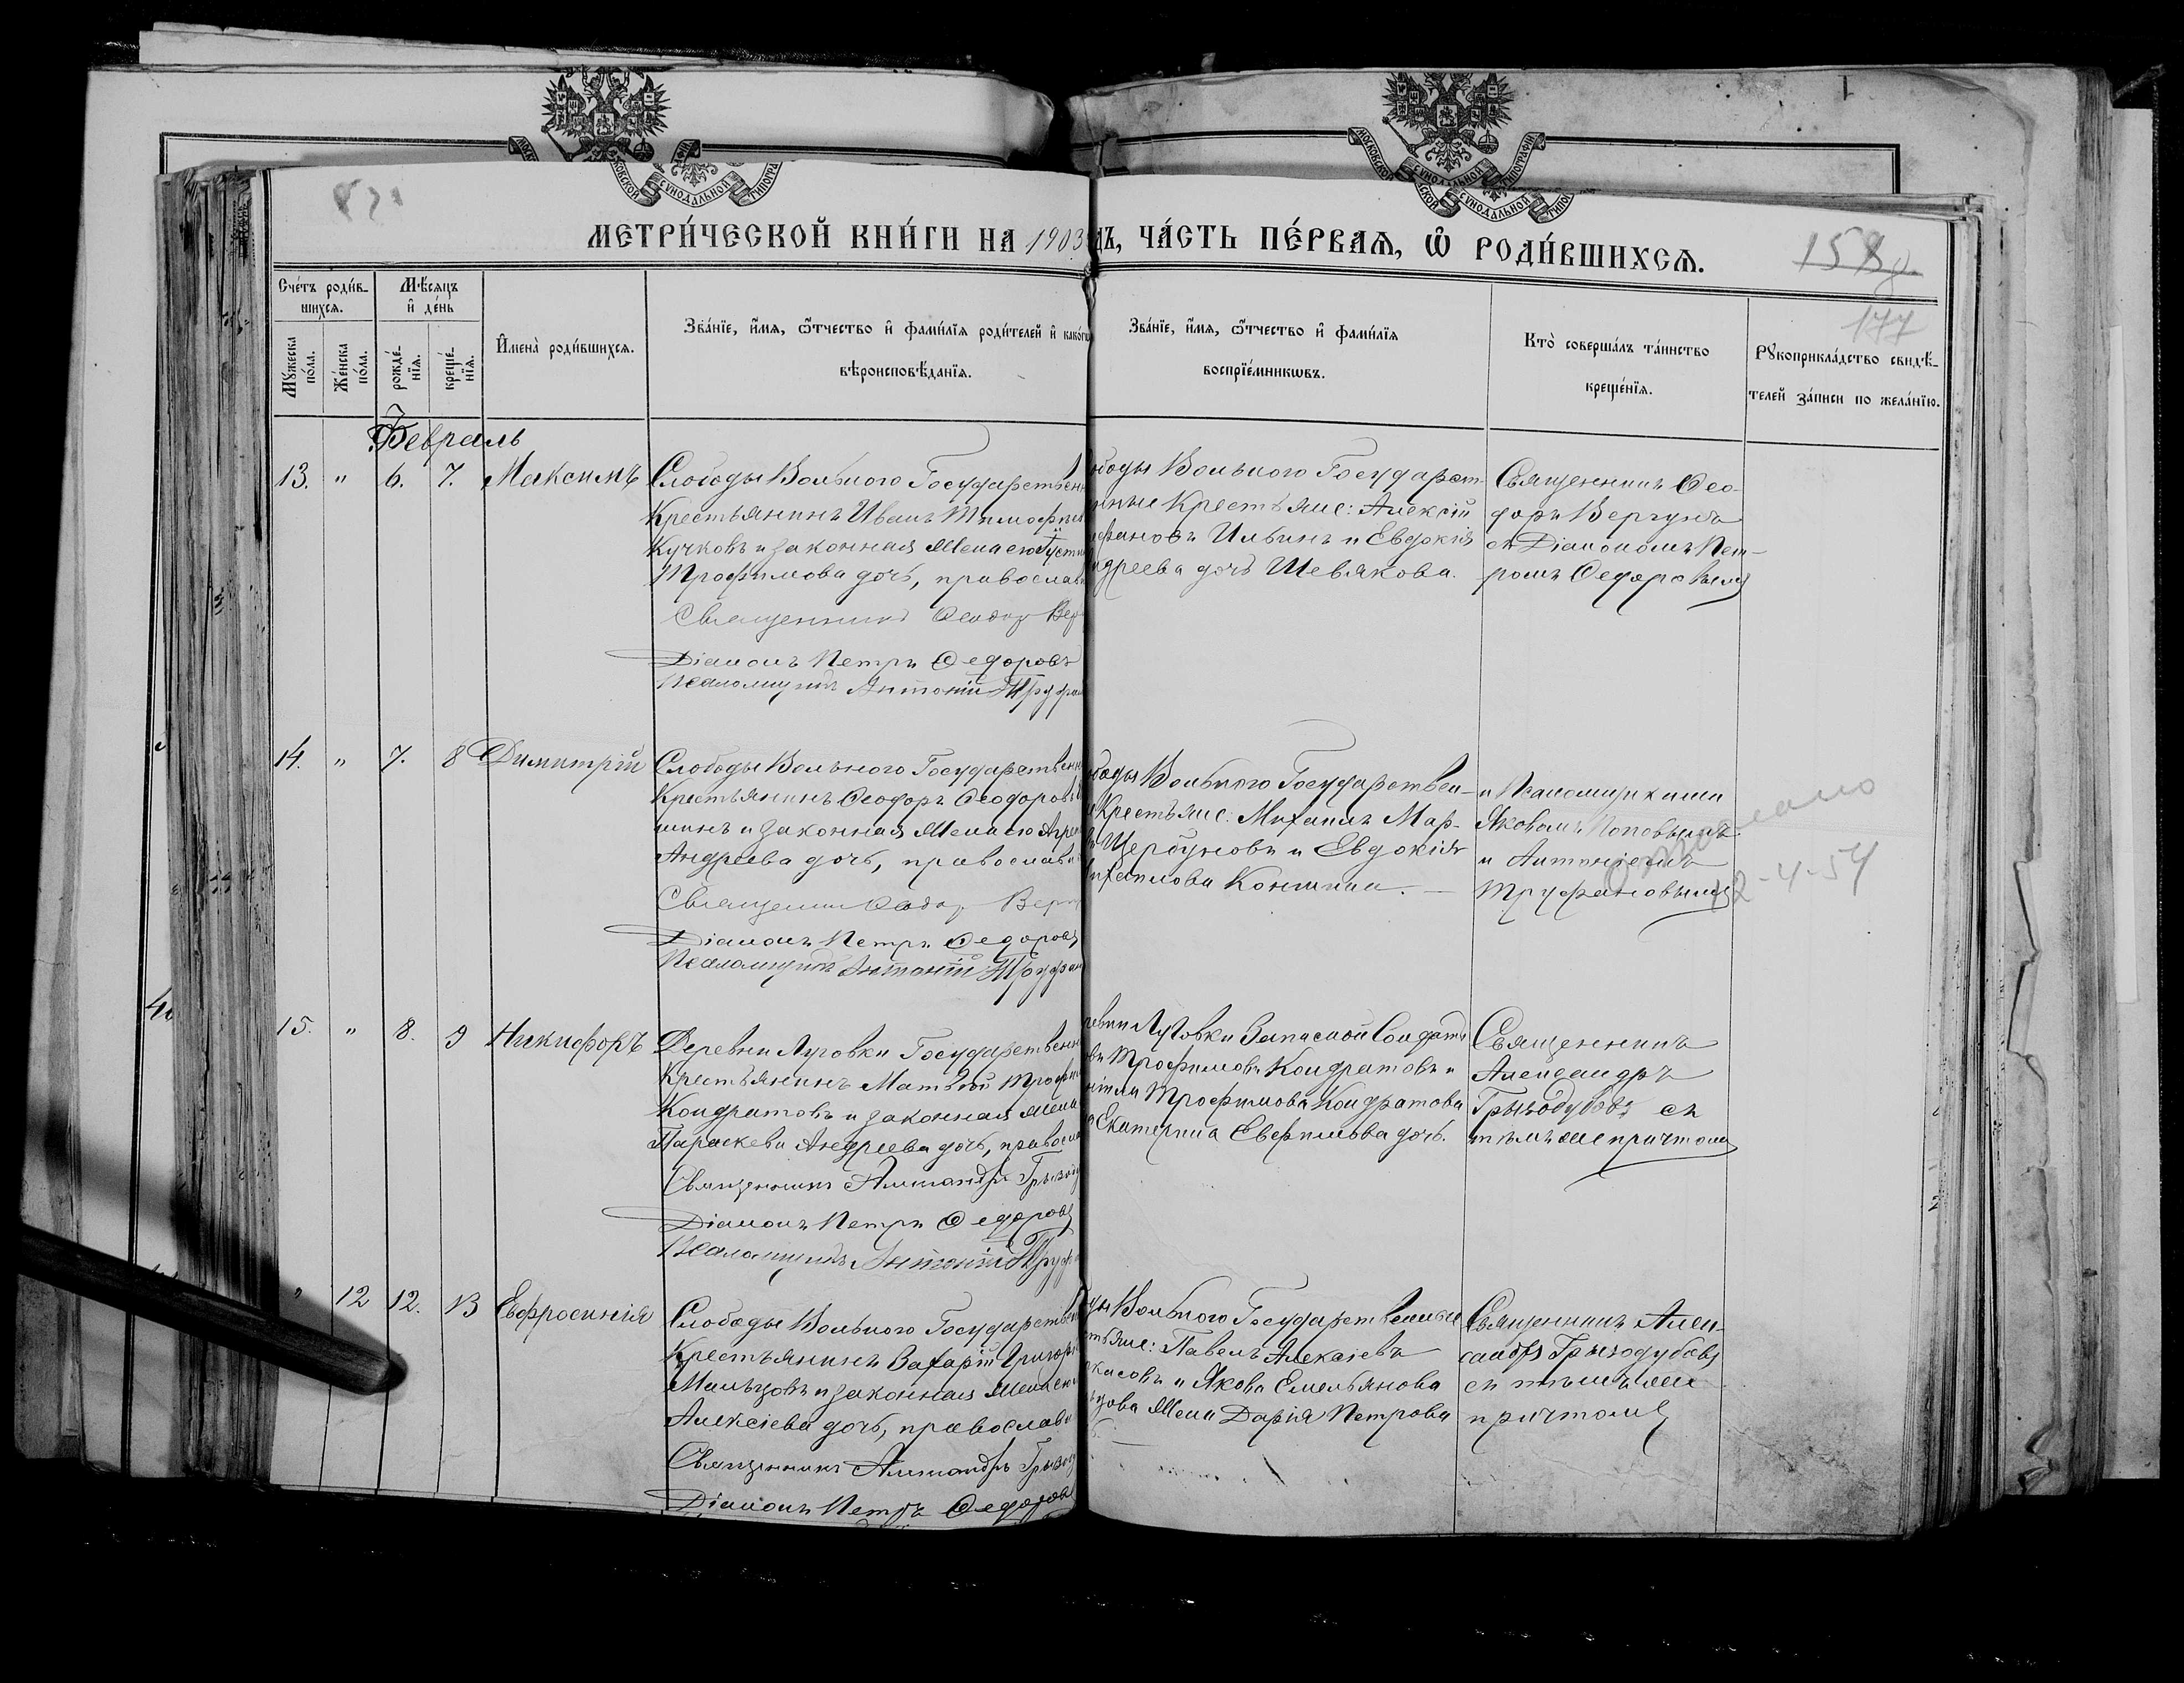 МЕТРИ́ЧЕСКОЙ КНИ́ГИ НА 1903 ДЪ, ЧА́СТЬ ПЕ́РВАЯ, Ѡ РОДИ́ВШИХСЯ.
158
177
Сче́тъ роди́в-
шихся.
Мѣсяцъ
и де́нь
Му́жеска по́ла.
Же́нска по́ла.
рожде́-
нїя.
креще́-
нїя.
Имена̀ роди́вшихся.
Зва́нїе, и́мя, о́тчество и фами́лїя роди́телей и како́гѡ
вѣроисповѣ́данїя.
Зва́нїе, и́мя, о́тчество и фами́лїя
воспрїе́мникѡвъ.
Кто̀ соверша́лъ та́инство
креще́нїя.
Рукоприкла́дство свидѣ́-
телей за́писи по жела́нїю.
Февраль
13. " 6. 7. Максимъ
Слободы Вольного Государствен
Крестьянинъ Иванъ Тимофѣев
Кучковъ и законная жена его Густи
Трофимова дочь, православн
Священникъ Ѳеодоръ Вер
Діаконъ Петръ Ѳедоровъ
Псаломщикъ Антоній Труфан
ободы Вольного Государст-
нные Крестьяне: Алексій
ефановъ Ильинъ и Евдокія
ндреева дочь Шевякова.
Священникъ Ѳео-
доръ Вергунъ
съ Діакономъ Пет-
ромъ Ѳедоровымъ
14. " 7. 8 Димитрій
Слободы Вольного Государственн
Крестьянинъ Ѳеодоръ Ѳеодоровъ
шинъ и законная жена его Агри
Андреева дочь, православн
Священникъ Ѳеодоръ Верг
Діаконъ Петръ Ѳедоровъ
Псаломщикъ Антоній Труфан
боды Вольного Государствен-
Крестьяне: Михаилъ Мар-
Щербуновъ и Евдокія
ихаилова Коншина.
и Псаломщиками
Яковомъ Поповымъ
и Антоніемъ
Труфановымъ
2-4-54
15. " 8. 9 Никифоръ
Деревни Луговки Государственн
Крестьянинъ Матвѣй Трофим
Кондратовъ и законная жена
Параскева Андреева дочь, правосла
Священникъ Александръ Грызоду
Діаконъ Петръ Ѳедоровъ
Псаломщикъ Антоній Труфа
ревни Луговки Запасной Солдатъ
Трофимовъ Кондратовъ и
Трофимова Кондратова
Екатерина Евфимьева дочь.
Священникъ
Александръ
Грызодубовъ съ
тѣмъ же причтомъ
" 12 12. 13 Евфросинія
Слободы Вольного Государствен
Крестьянинъ Захарій Григорь
Мальцовъ и законная жена его
Алексіева дочь, православн
Священникъ Александръ Грызоду
Діаконъ Петръ Ѳедоровъ
ды Вольного Государственные
стьяне: Павелъ Алексіевъ
касовъ и Якова Емельянова
ьцова жена Дарія Петрова
Священникъ Алек-
сандръ Грызодубовъ
съ тѣмъ же
причтомъ